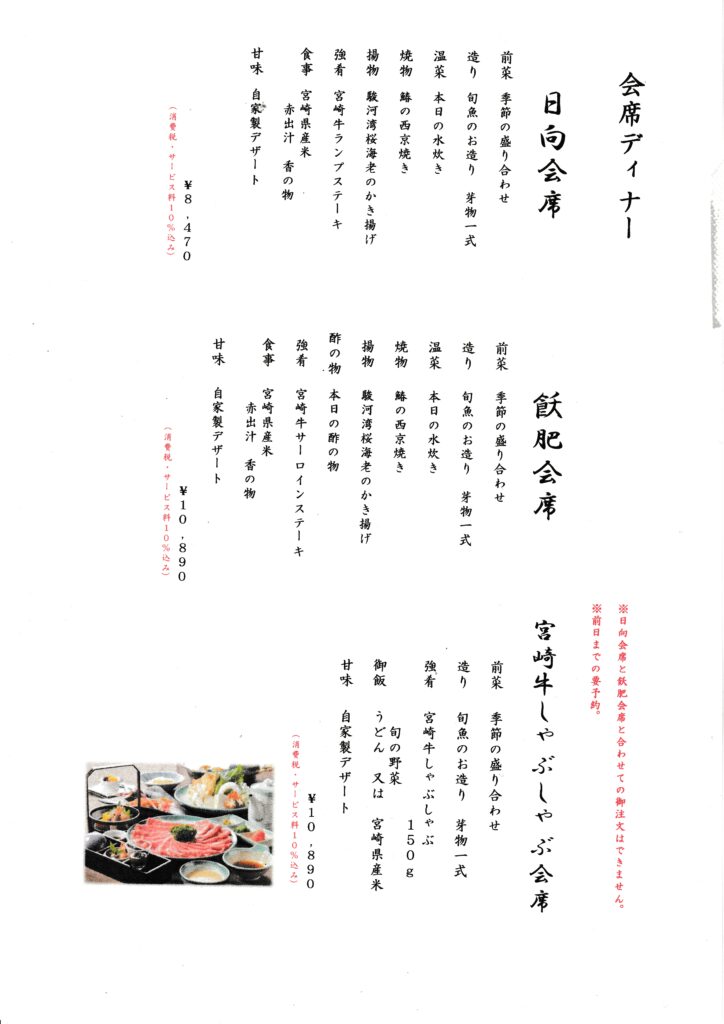 会席ディナー
日向会席
前菜 季節の盛り合わせ
造り 旬魚のお造り 芽物一式
温菜 本日の水炊き
焼物 鰆の西京焼き
揚物 駿河湾桜海老のかき揚げ
強肴 宮崎牛ランプステーキ
食事 宮崎県産米
赤出汁 香の物
甘味 自家製デザート
¥8,470
(消費税・サービス料10%込み)
飫肥会席
前菜 季節の盛り合わせ
造り 旬魚のお造り 芽物一式
温菜 本日の水炊き
焼物 鰆の西京焼き
揚物 駿河湾桜海老のかき揚げ
酢の物 本日の酢の物
強肴 宮崎牛サーロインステーキ
食事 宮崎県産米
赤出汁 香の物
甘味 自家製デザート
¥10,890
(消費税・サービス料10%込み)
※日向会席と飫肥会席と合わせての御注文はできません。
※前日までの要予約。
宮崎牛しゃぶしゃぶ会席
前菜 季節の盛り合わせ
造り 旬魚のお造り 芽物一式
強肴 宮崎牛しゃぶしゃぶ
150g
旬の野菜
御飯 うどん 又は 宮崎県産米
甘味 自家製デザート
¥10,890
(消費税・サービス料10%込み)